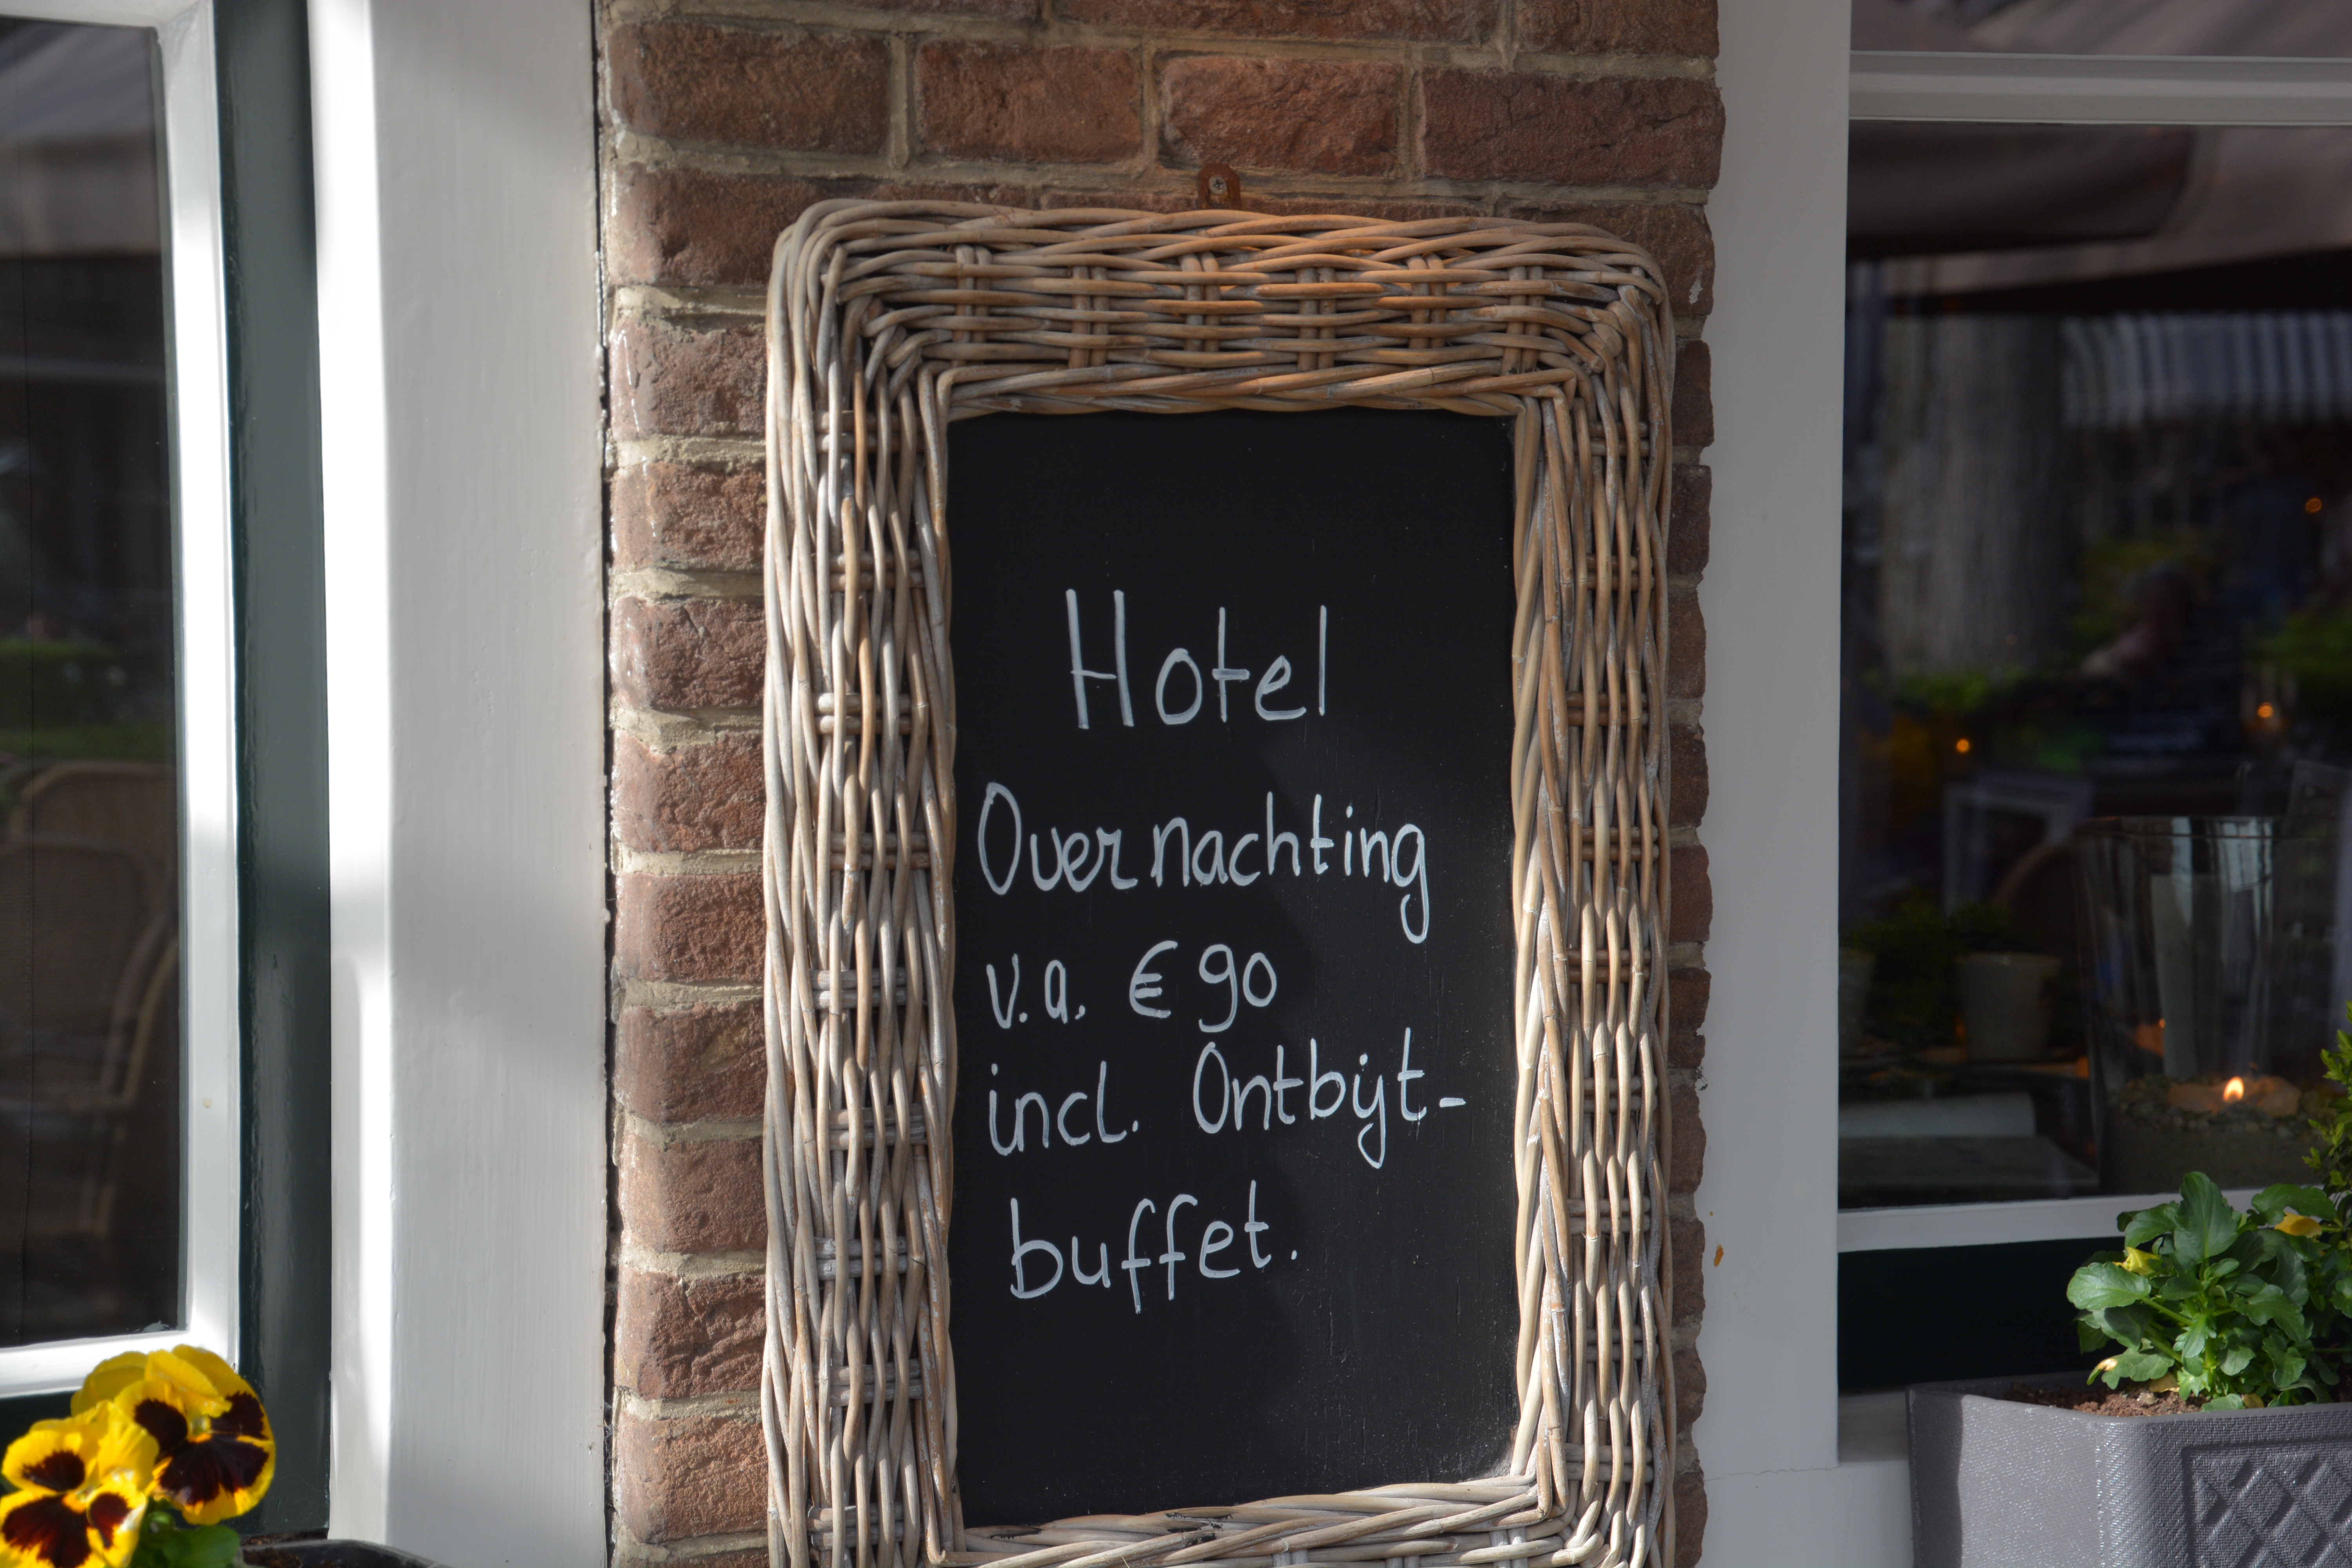 Hotel
Overnachting
v.a. € 90
incl. Ontbijt-
buffet.